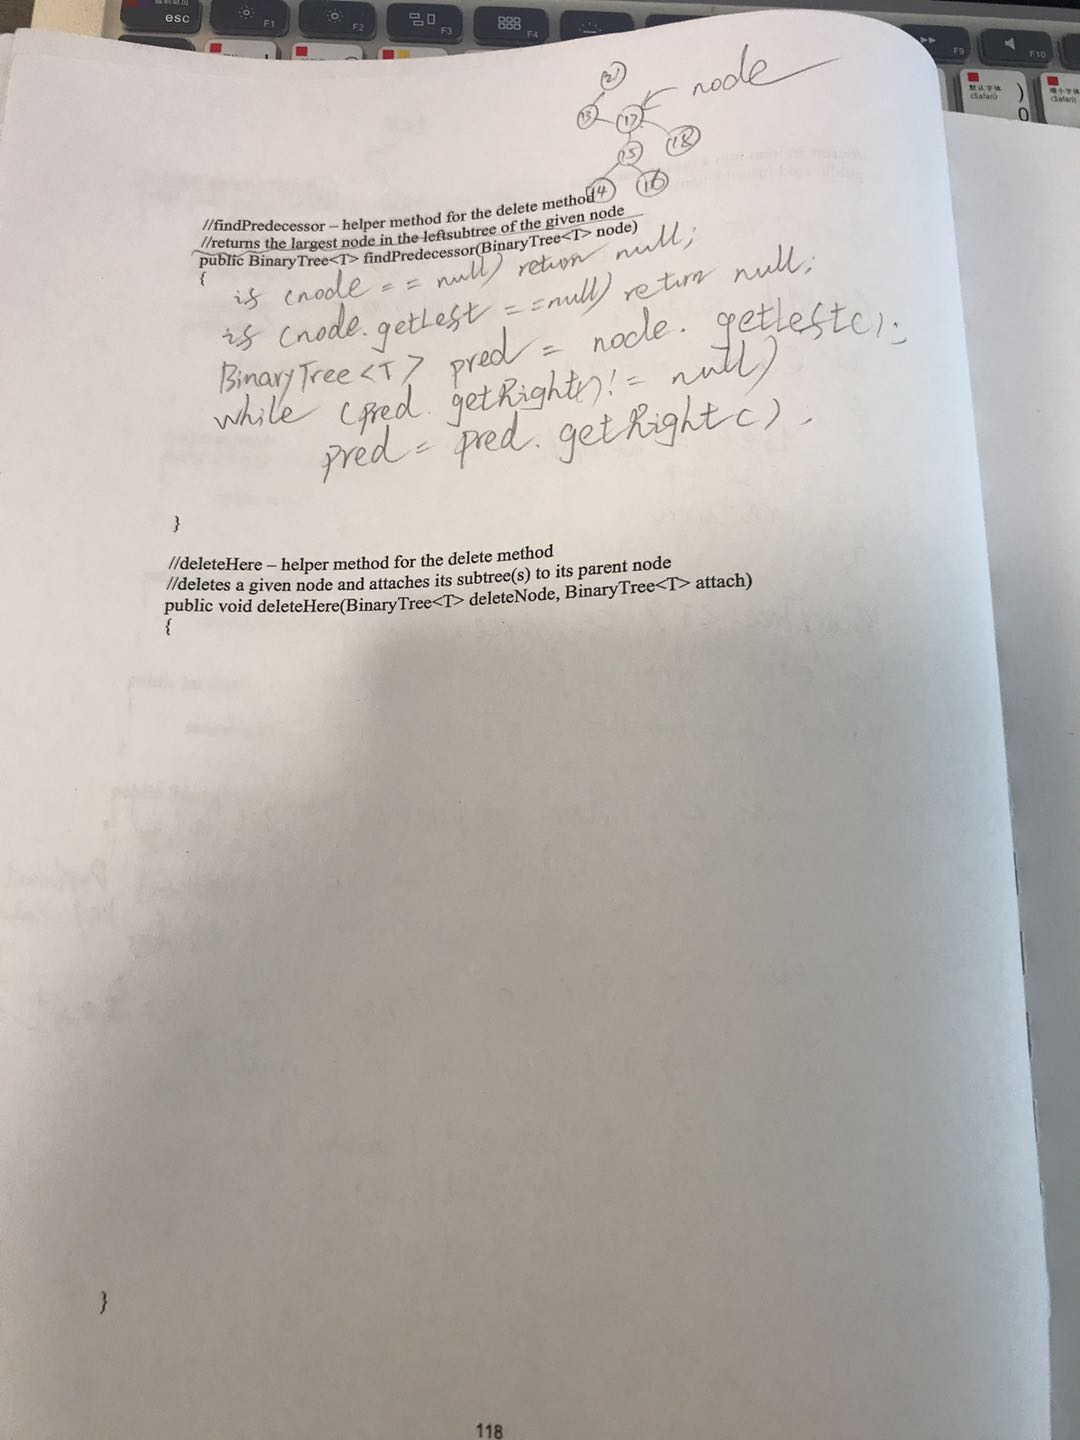 esc
F1
F2
F3
F4
F9
F10
默认字体
(Safari)
)
0
缩小字体
(Safari)
21
13 17
node
15 18
14 16
//findPredecessor – helper method for the delete method
//returns the largest node in the leftsubtree of the given node
public BinaryTree<T> findPredecessor(BinaryTree<T> node)
{
if (node == null) return null;
if (node.getLeft == null) return null;
BinaryTree<T> pred = node. getLeft();
while (pred. getRight()!= null)
pred = pred. getRight().
}
//deleteHere – helper method for the delete method
//deletes a given node and attaches its subtree(s) to its parent node
public void deleteHere(BinaryTree<T> deleteNode, BinaryTree<T> attach)
{
}
118